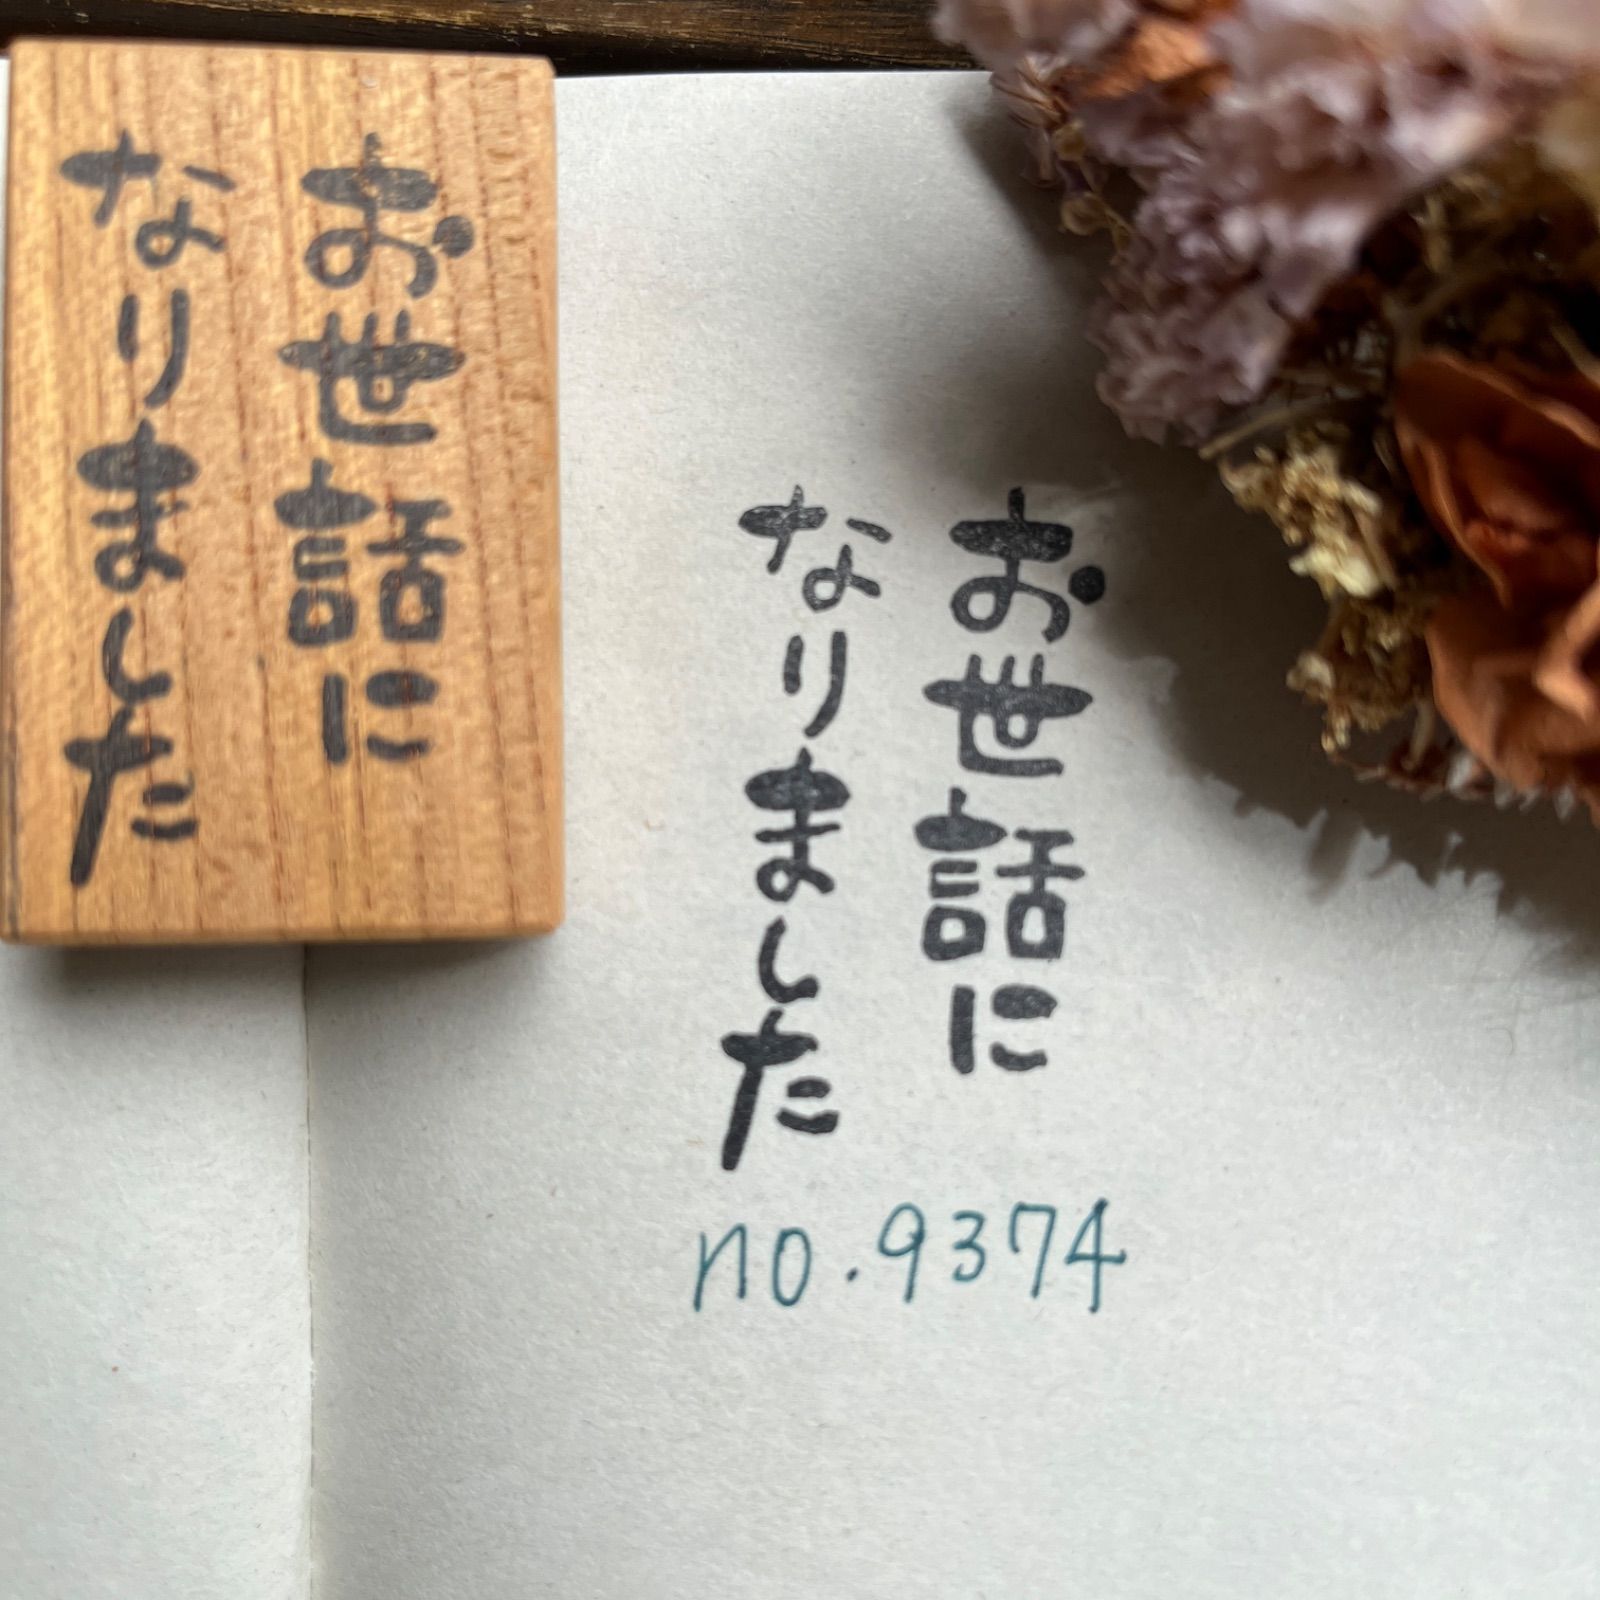 お世話に
なりました
お世話に
なりました
no.9374